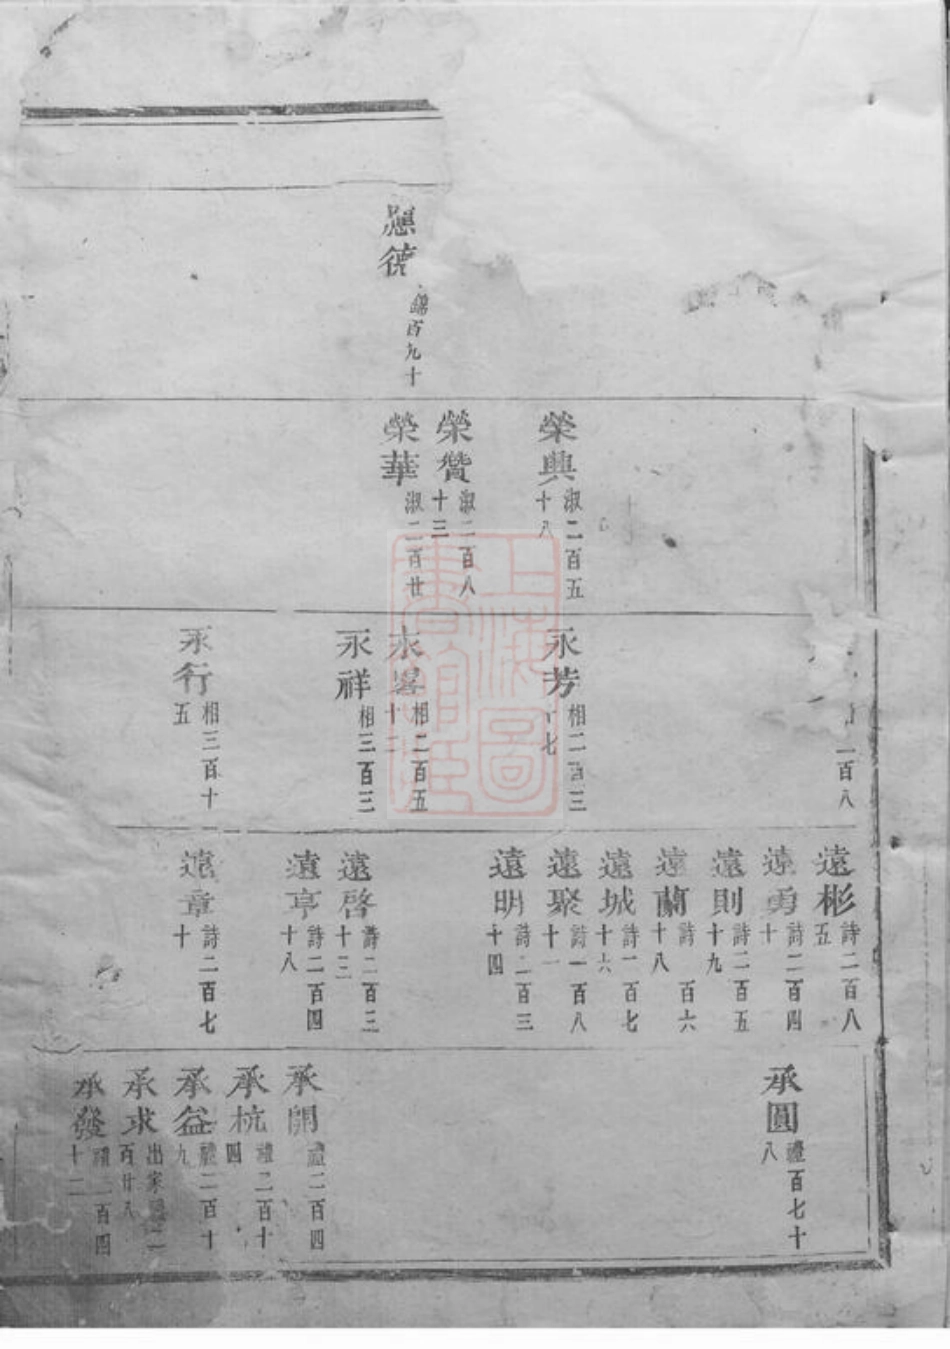 德
錫百九十
榮興 淑二百五十八
榮贊 淑二百八十三
榮華 淑二百廿
二百八
永芳 相二百三十七
永 相二百五十二
永祥 相三百三
永行 相三百十五
遠彬 詩二百八五
遠勇 詩二百四十
遠則 詩二百五十九
遠蘭 詩 百六十八
遠城 詩一百七十六
遠聚 詩一百八十一
遠明 詩二百三十四
遠啓 詩二百三十三
遠亨 詩二百四十八
遠章 詩二百七十
承圓 禮百七十八
承開 禮二百四
承杭 禮二百十四
承益 禮二百十九
承求 出家禮二百廿八
承發 禮二百四十二
上海圖書館藏